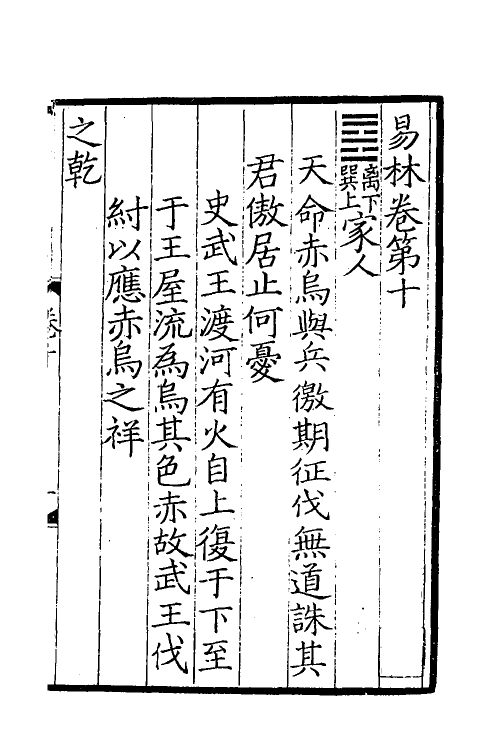 易林卷第十
䷤離下巽上家人
天命赤烏與兵徼期征伐無道誅其
君傲居止何憂
史武王渡河有火自上復于下至
于王屋流為烏其色赤故武王伐
紂以應赤烏之祥
之乾
卷十